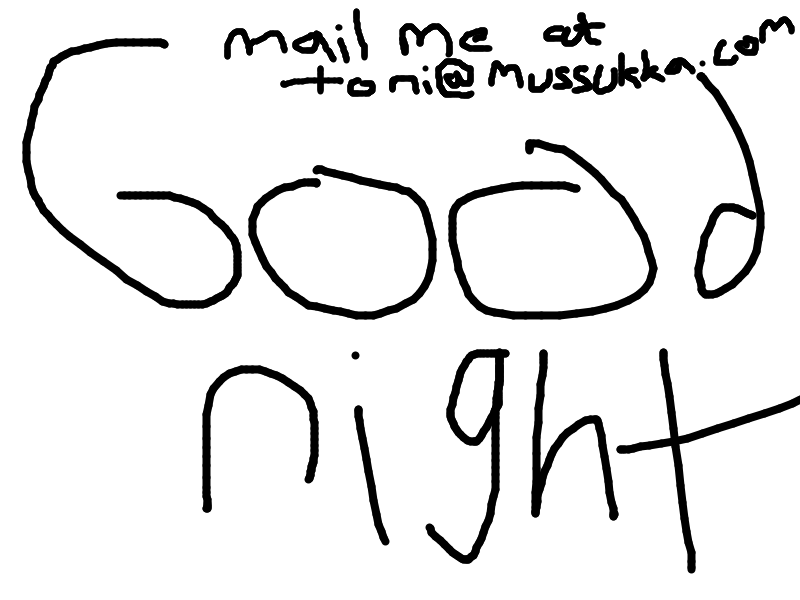 mail me at
toni@mussukka.com
Good
night